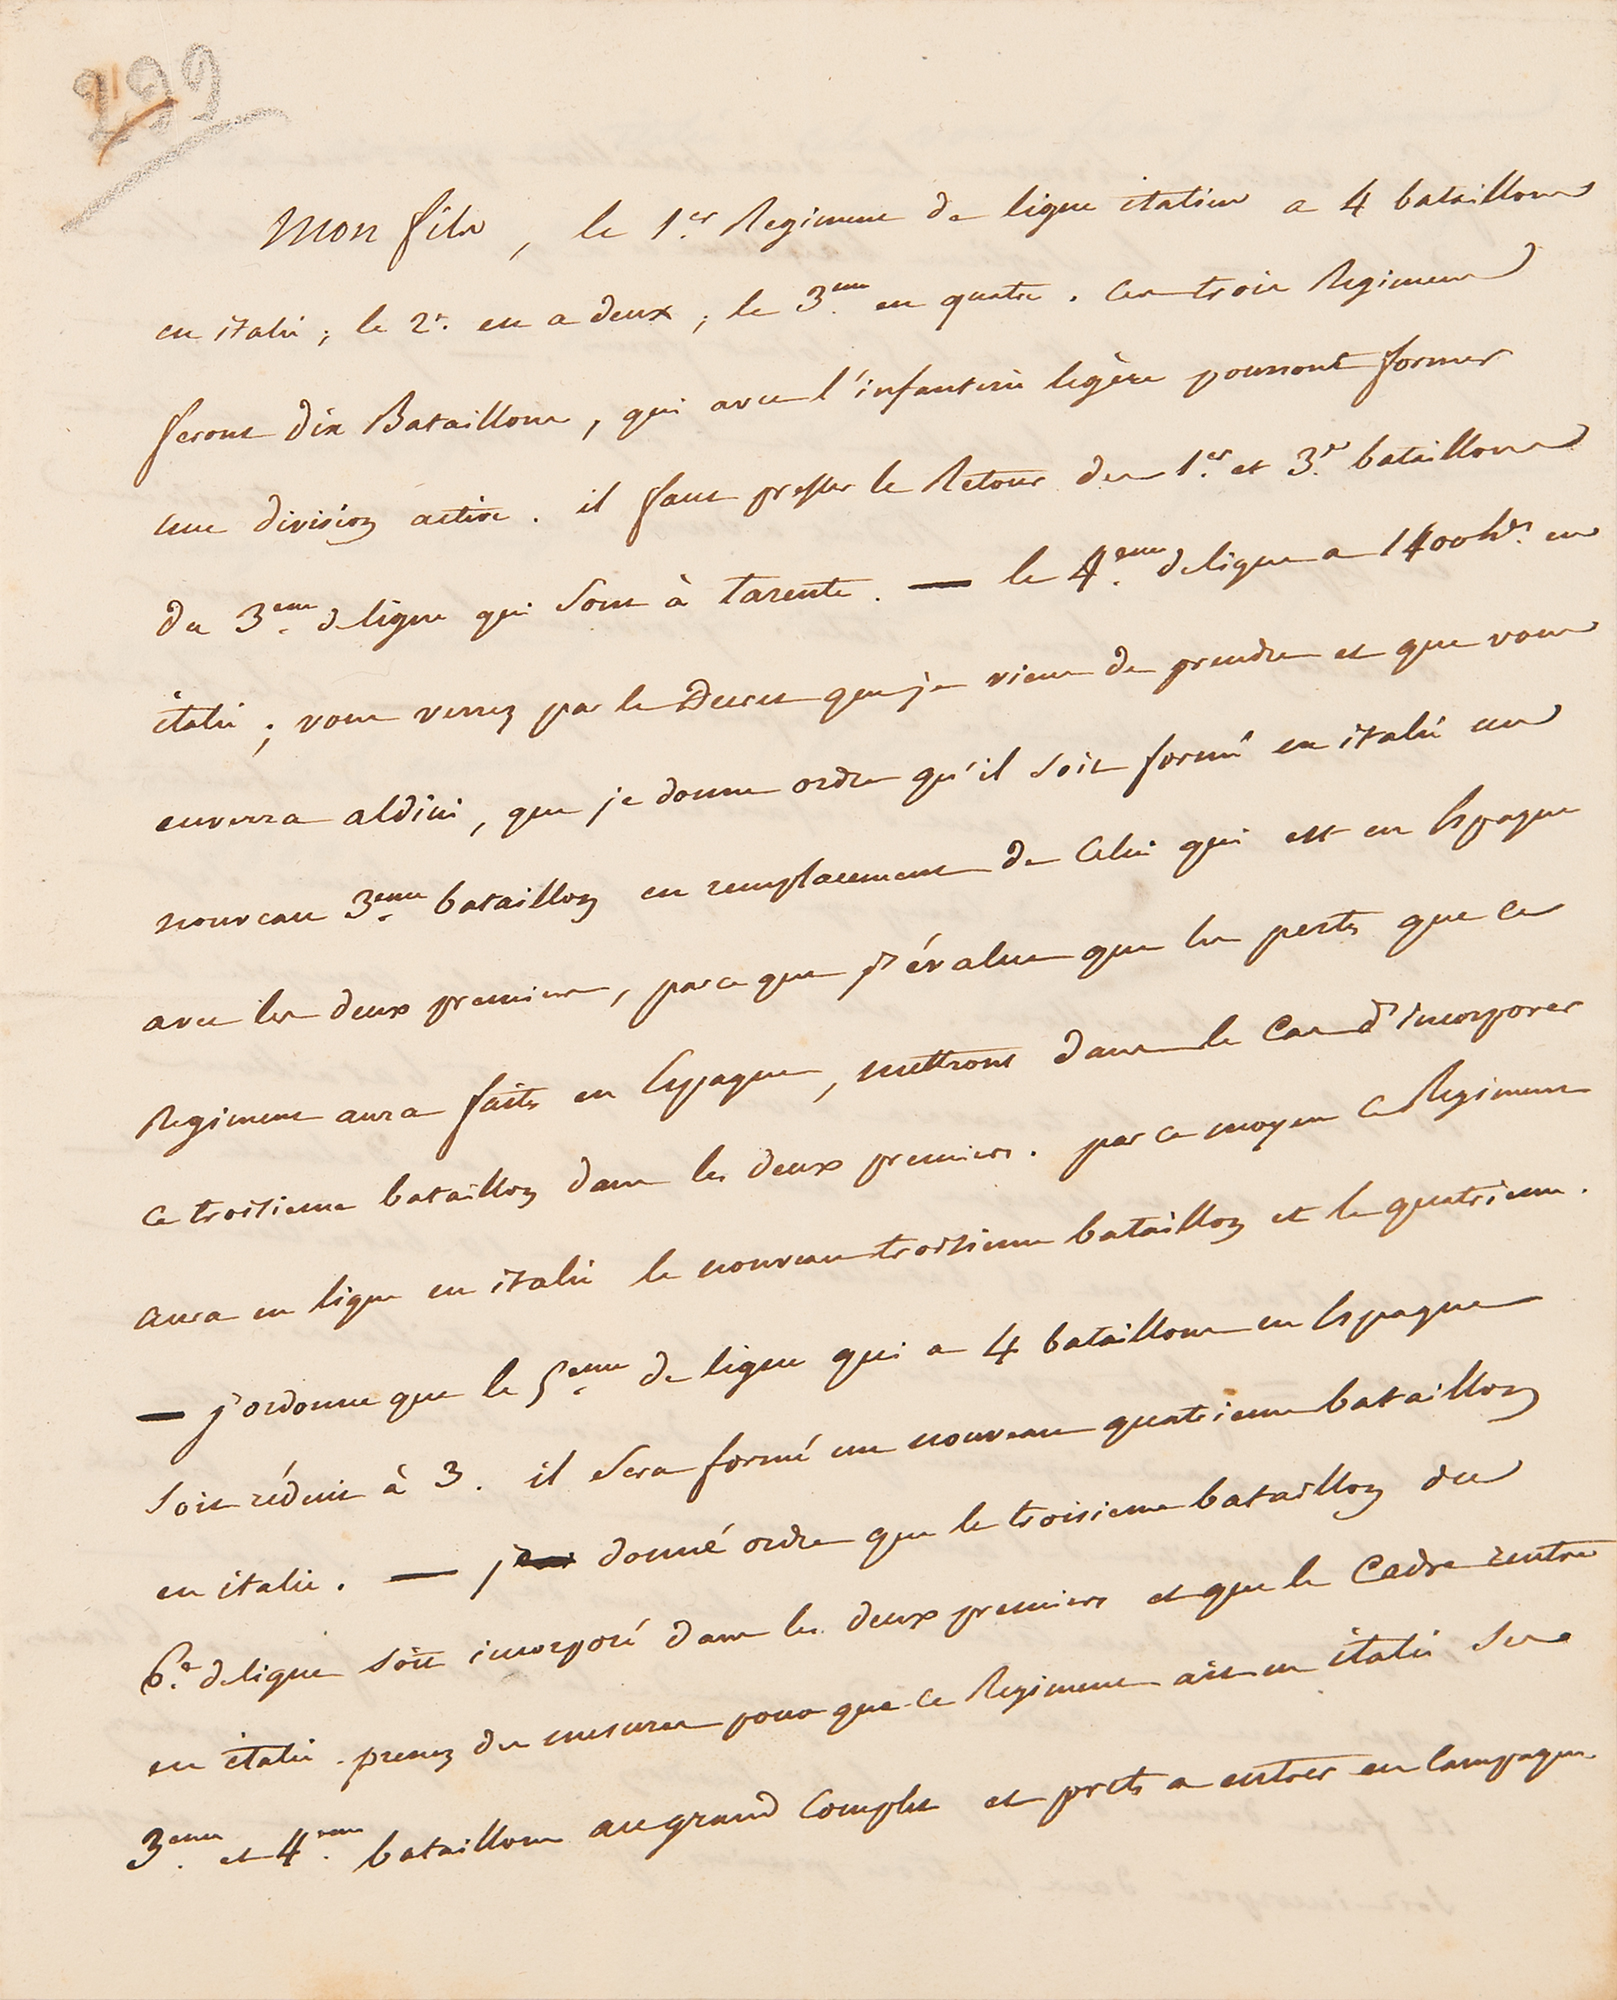 299
Mon fils, le 1.er Regiment de ligne italien a 4 bataillons
en italie; le 2.e en a deux; le 3.eme en quatre. Ces trois Regimens
feront dix Bataillons, qui avec l'infanterie legère pourront former
une division active. il faut presser le Retour des 1.er et 3.e bataillons
du 3.eme de ligne qui sont à tarente. — le 4.eme de ligne a 1400 h.es en
italie; vous verrez par le Decret que je viens de prendre et que vous
enverra aldini, que je donne ordre qu'il soit formé en italie un
nouveau 3.eme bataillon en remplacement de Celui qui est en Espagne
avec les deux premiers, parce que j'évalue que les pertes que ce
Regiment aura faites en Espagne, mettront dans le Cas d'incorporer
ce troisieme bataillon dans les deux premiers. par ce moyen ce Regiment
aura en ligne en italie le nouveau troisieme bataillon et le quatrieme.
— j'ordonne que le 5.eme de ligne qui a 4 bataillons en Espagne
soit réduit à 3. il sera formé un nouveau quatrieme bataillon
en italie. — j' donné ordre que le troisieme bataillon du
6.e de ligne soit incorporé dans les deux premiers et que le Cadre rentre
en italie. prenez des mesures pour que ce Regiment ait en italie ses
3.eme et 4.eme bataillons au grand Complet et prets a entrer en Campagne.